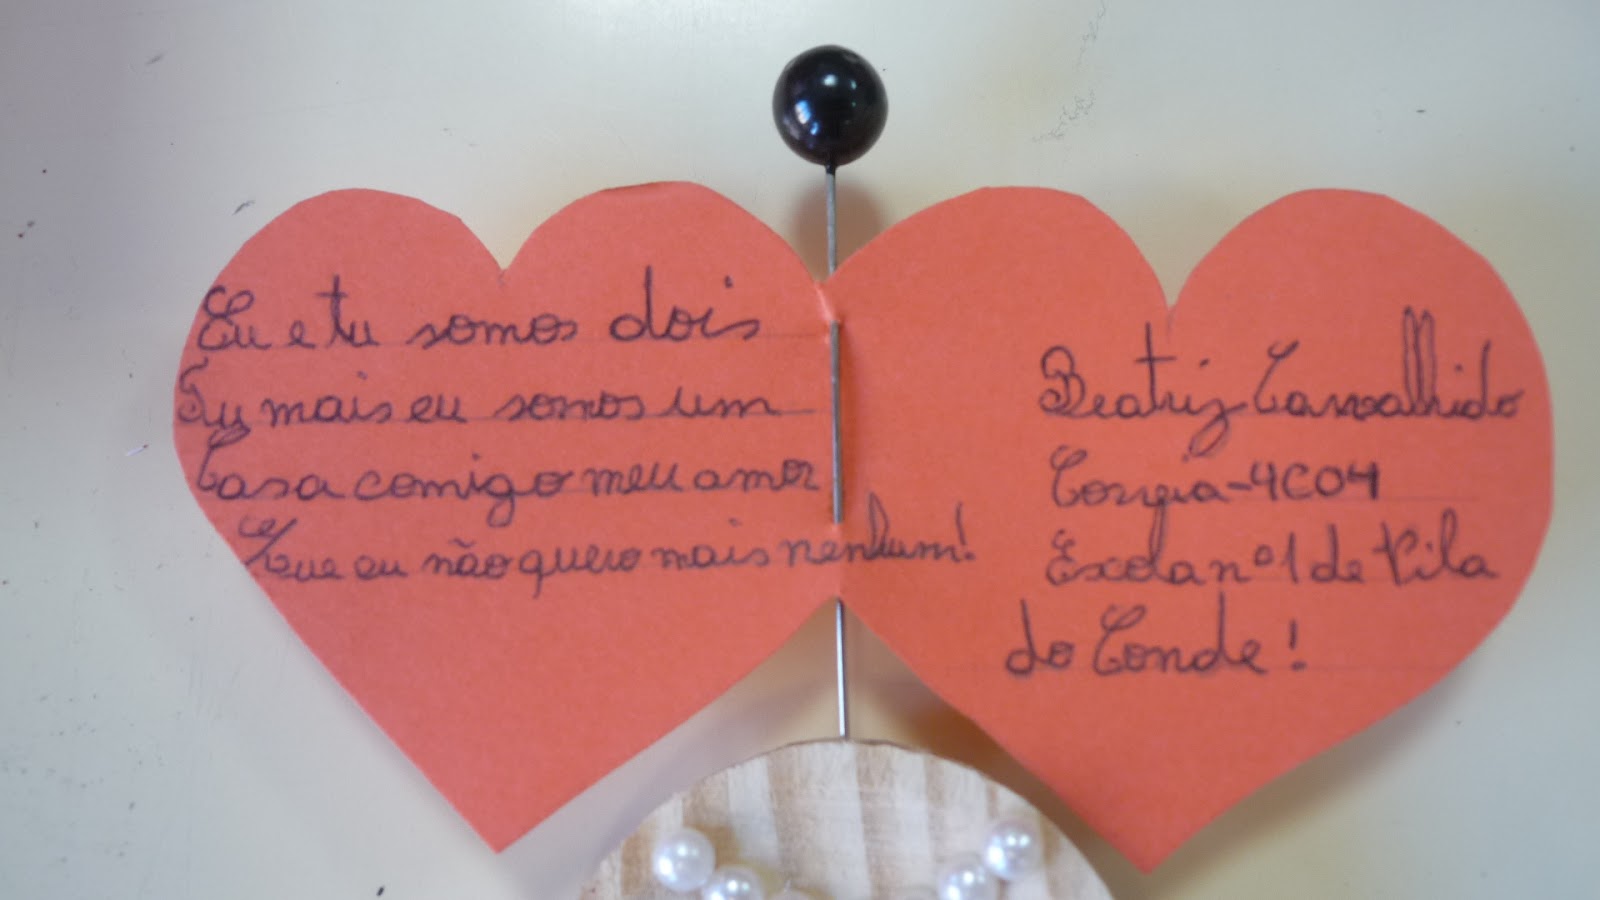 Eu e tu somos dois
Tu mais eu somos um
Casa comigo meu amor
Que eu não quero mais nenhum!
Beatriz Carvalhido
-4C04
Escola nº1 de Vila
do Conde!